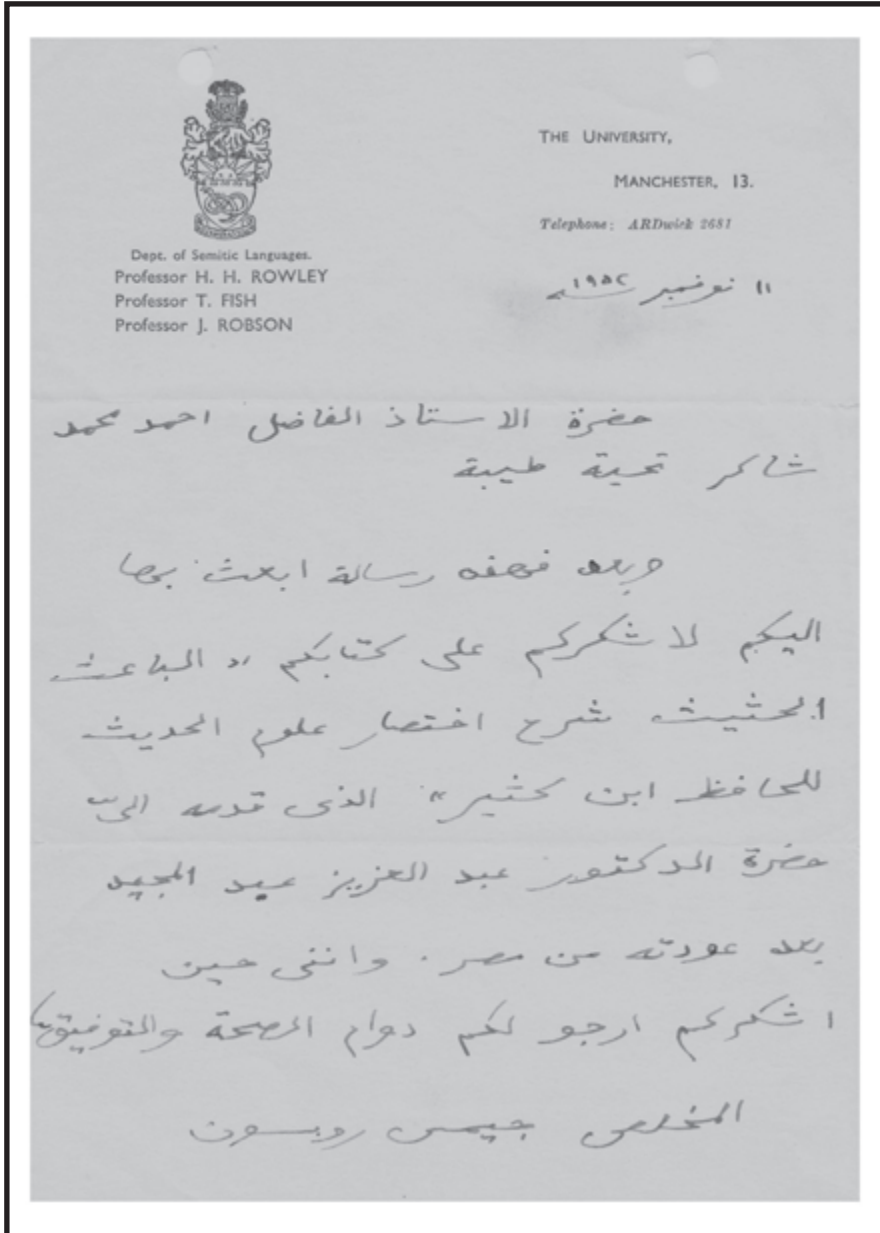 THE UNIVERSITY,
MANCHESTER, 13.
Telephone: ARDwick 2681
Dept. of Semitic Languages.
Professor H. H. ROWLEY
Professor T. FISH
Professor J. ROBSON
١١ نوفمبر ١٩٥٢م
حضرة الاستاذ الفاضل احمد محمد
شاكر تحية طيبة
وبعد فهذه رسالة ابعث بها
اليكم لاشكركم على كتابكم "الباعث
الحثيث شرح اختصار علوم الحديث
للحافظ ابن كثير" الذى قدمه الىّ
حضرة الدكتور عبد العزيز عبد المجيد
بعد عودته من مصر. واننى حين
اشكركم ارجو لكم دوام الصحة والتوفيق
المخلص جيمس روبسون